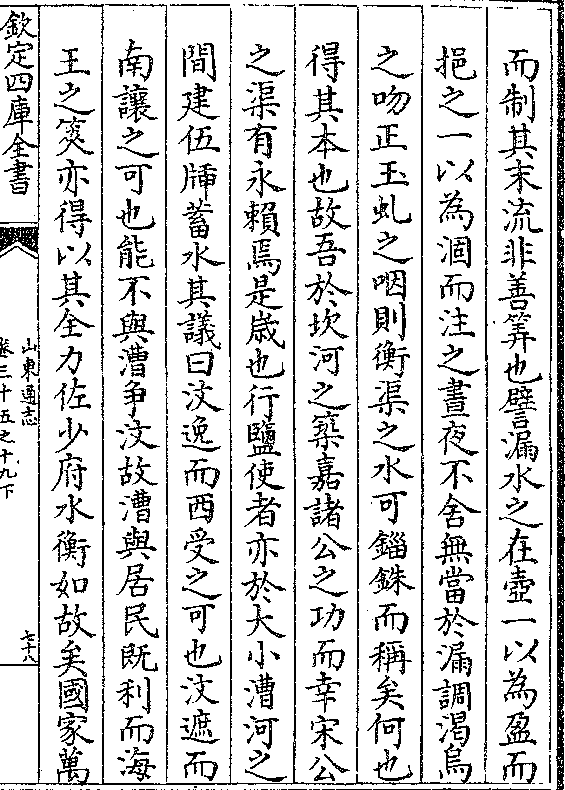 而制其末流非善筭也譬漏水之在壺一以為盈而
挹之一以為涸而注之晝夜不舍無當於漏調渇烏
之吻正玉虬之咽則衡渠之水可錙銖而稱矣何也
得其本也故吾於坎河之築嘉諸公之功而幸宋公
之渠有永賴焉是歲也行鹽使者亦於大小漕河之
間建伍牐蓄水其議曰汶逸而西受之可也汶遮而
南讓之可也能不與漕爭汶故漕與居民既利而海
王之筴亦得以其全力佐少府水衡如故矣國家萬
欽定四庫全書
山東通志
卷三十五之十九下
七十八